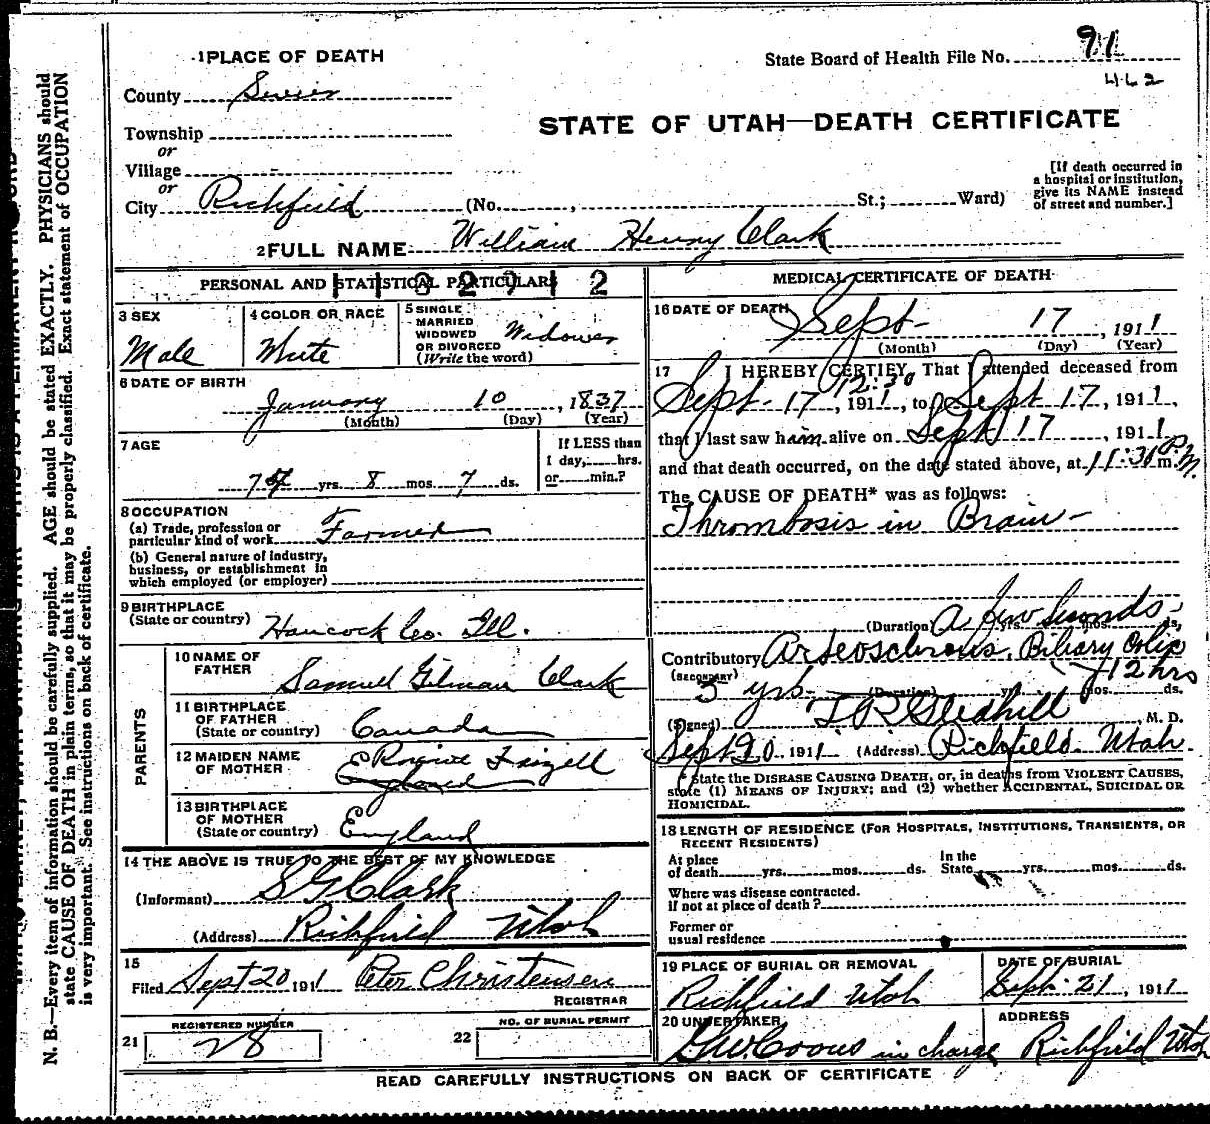 1 PLACE OF DEATH
State Board of Health File No. 91
462
County Sevier
STATE OF UTAH—DEATH CERTIFICATE
Township
or
Village
or
City Richfield (No. , St.; Ward)
[If death occurred in
a hospital or institution,
give its NAME instead
of street and number.]
2 FULL NAME William Henry Clark
PERSONAL AND STATISTICAL PARTICULARS
3 SEX
Male
4 COLOR OR RACE
White
5 SINGLE
MARRIED
WIDOWED
OR DIVORCED
(Write the word)
Widower
6 DATE OF BIRTH
January 10, 1837
(Month) (Day) (Year)
7 AGE
74 yrs. 8 mos. 7 ds.
If LESS than
1 day, hrs.
or min.?
8 OCCUPATION
(a) Trade, profession or
particular kind of work Farmer
(b) General nature of industry,
business, or establishment in
which employed (or employer)
9 BIRTHPLACE
(State or country) Hancock Co. Ill.
PARENTS
10 NAME OF
FATHER Samuel Gilman Clark
11 BIRTHPLACE
OF FATHER
(State or country) Canada
12 MAIDEN NAME
OF MOTHER Frizell
England
13 BIRTHPLACE
OF MOTHER
(State or country) England
14 THE ABOVE IS TRUE TO THE BEST OF MY KNOWLEDGE
(Informant) S G Clark
(Address) Richfield Utah
15
Filed Sept 20 1911 Peter Christensen
REGISTRAR
21 REGISTERED NUMBER
28
22 NO. OF BURIAL PERMIT
MEDICAL CERTIFICATE OF DEATH
16 DATE OF DEATH
Sept 17, 1911
(Month) (Day) (Year)
17 I HEREBY CERTIFY, That I attended deceased from
12:30
Sept. 17, 1911, to Sept 17, 1911,
that I last saw him alive on Sept 17, 1911
and that death occurred, on the date stated above, at 11:30 P.M. m.
The CAUSE OF DEATH* was as follows:
Thrombosis in Brain
(Duration) A few Seconds yrs. mos. ds.
Contributory Arteosclerosis, Biliary Colic
(SECONDARY) 12 hrs
5 yrs. (Duration) yrs. mos. ds.
(Signed) T R Gledhill, M. D.
Sept 20 1911 (Address) Richfield Utah
*State the DISEASE CAUSING DEATH, or, in deaths from VIOLENT CAUSES,
state (1) MEANS OF INJURY; and (2) whether ACCIDENTAL, SUICIDAL OR
HOMICIDAL.
18 LENGTH OF RESIDENCE (FOR HOSPITALS, INSTITUTIONS, TRANSIENTS, OR
RECENT RESIDENTS)
At place
of death yrs. mos. ds.
In the
State yrs. mos. ds.
Where was disease contracted.
if not at place of death?
Former or
usual residence
19 PLACE OF BURIAL OR REMOVAL
Richfield Utah
DATE OF BURIAL
Sept. 21, 1911
20 UNDERTAKER
in charge
ADDRESS
Richfield Utah
READ CAREFULLY INSTRUCTIONS ON BACK OF CERTIFICATE
N. B.—Every item of information should be carefully supplied. AGE should be stated EXACTLY. PHYSICIANS should
state CAUSE OF DEATH in plain terms, so that it may be properly classified. Exact statement of OCCUPATION
is very important. See instructions on back of certificate.